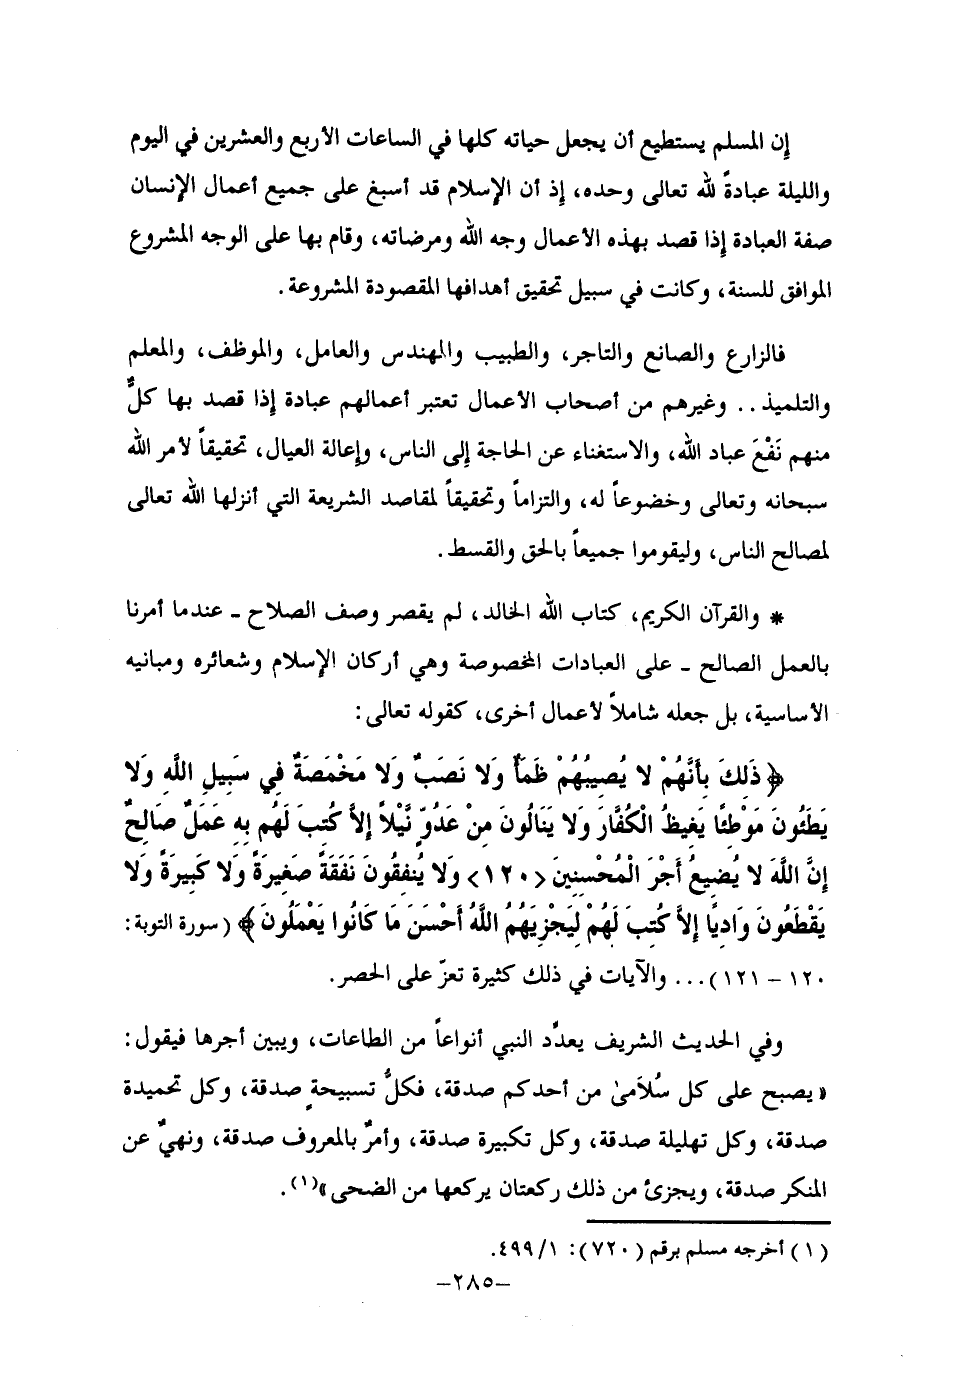 إن المسلم يستطيع أن يجعل حياته كلها في الساعات الأربع والعشرين في اليوم
والليلة عبادةً لله تعالى وحده، إذ أن الإسلام قد أسبغ على جميع أعمال الإنسان
صفة العبادة إذا قصد بهذه الأعمال وجه الله ومرضاته، وقام بها على الوجه المشروع
الموافق للسنة، وكانت في سبيل تحقيق أهدافها المقصودة المشروعة.
فالزارع والصانع والتاجر، والطبيب والمهندس والعامل، والموظف، والمعلم
والتلميذ.. وغيرهم من أصحاب الأعمال تعتبر أعمالهم عبادة إذا قصد بها كلٌّ
منهم نَفْعَ عباد الله، والاستغناء عن الحاجة إلى الناس، وإعالة العيال، تحقيقاً لأمر الله
سبحانه وتعالى وخضوعاً له، والتزاماً وتحقيقاً لمقاصد الشريعة التي أنزلها الله تعالى
لمصالح الناس، وليقوموا جميعاً بالحق والقسط.
* والقرآن الكريم، كتاب الله الخالد، لم يقصر وصف الصلاح ـ عندما أمرنا
بالعمل الصالح ـ على العبادات المخصوصة وهي أركان الإسلام وشعائره ومبانيه
الأساسية، بل جعله شاملاً لأعمال أخرى، كقوله تعالى:
﴿ذَلِكَ بِأَنَّهُمْ لا يُصِيبُهُمْ ظَمَأٌ وَلا نَصَبٌ وَلا مَخْمَصَةٌ فِي سَبِيلِ اللَّهِ وَلا
يَطَئُونَ مَوْطِئًا يَغِيظُ الْكُفَّارَ وَلا يَنَالُونَ مِنْ عَدُوٍّ نَيْلاً إِلاَّ كُتِبَ لَهُم بِهِ عَمَلٌ صَالِحٌ
إِنَّ اللَّهَ لا يُضِيعُ أَجْرَ الْمُحْسِنِينَ <١٢٠> وَلا يُنفِقُونَ نَفَقَةً صَغِيرَةً وَلا كَبِيرَةً وَلا
يَقْطَعُونَ وَادِيًا إِلاَّ كُتِبَ لَهُمْ لِيَجْزِيَهُمُ اللَّهُ أَحْسَنَ مَا كَانُوا يَعْمَلُونَ﴾ (سورة التوبة:
١٢٠ – ١٢١)... والآيات في ذلك كثيرة تعزّ على الحصر.
وفي الحديث الشريف يعدِّد النبي أنواعاً من الطاعات، ويبين أجرها فيقول:
«يصبح على كل سُلاَمىٰ من أحدكم صدقة، فكلُّ تسبيحةٍ صدقة، وكل تحميدة
صدقة، وكل تهليلة صدقة، وكل تكبيرة صدقة، وأمرٌ بالمعروف صدقة، ونهيٌ عن
المنكر صدقة، ويجزئ من ذلك ركعتان يركعها من الضحى»(١).
(١) أخرجه مسلم برقم (٧٢٠): ٤٩٩/١.
–٢٨٥–